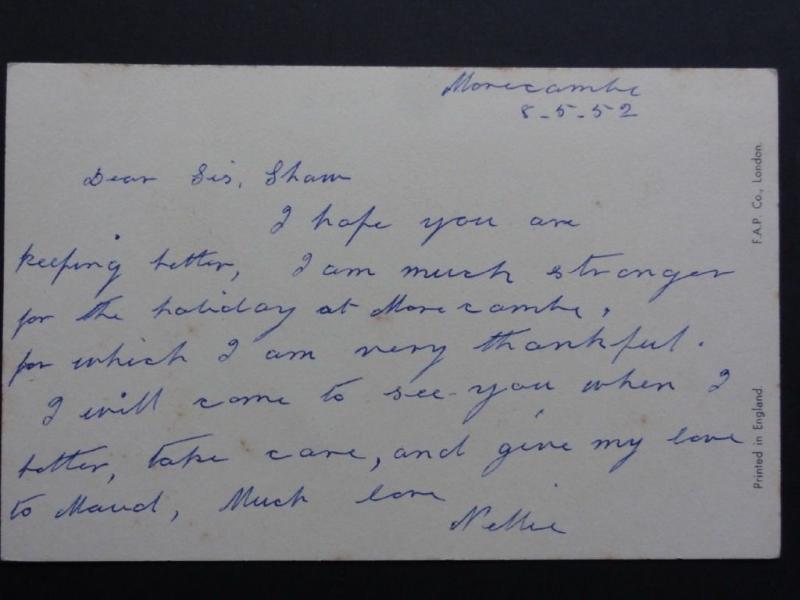 Morecambe
8-5-52
Dear Sis, Shaw
I hope you are
keeping better, I am much stronger
for the holiday at Morecambe,
for which I am very thankful.
I will come to see you when I
better, take care, and give my love
to Maud, Much love
Nellie
F.A.P. Co., London.
Printed in England.